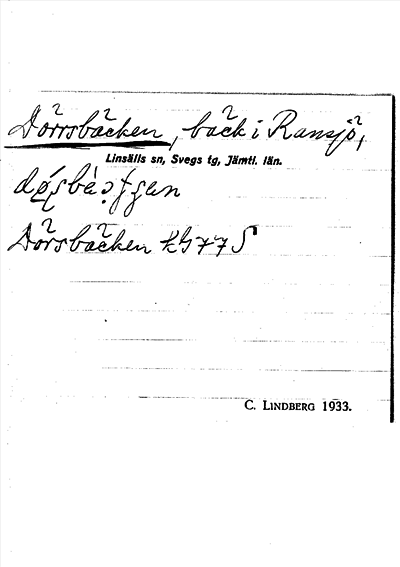 Dörrsbäcken, bäck i Ransjö,
Linsälls sn, Svegs tg, Jämtl. län.
Dörsbäcken
C. LINDBERG 1933.